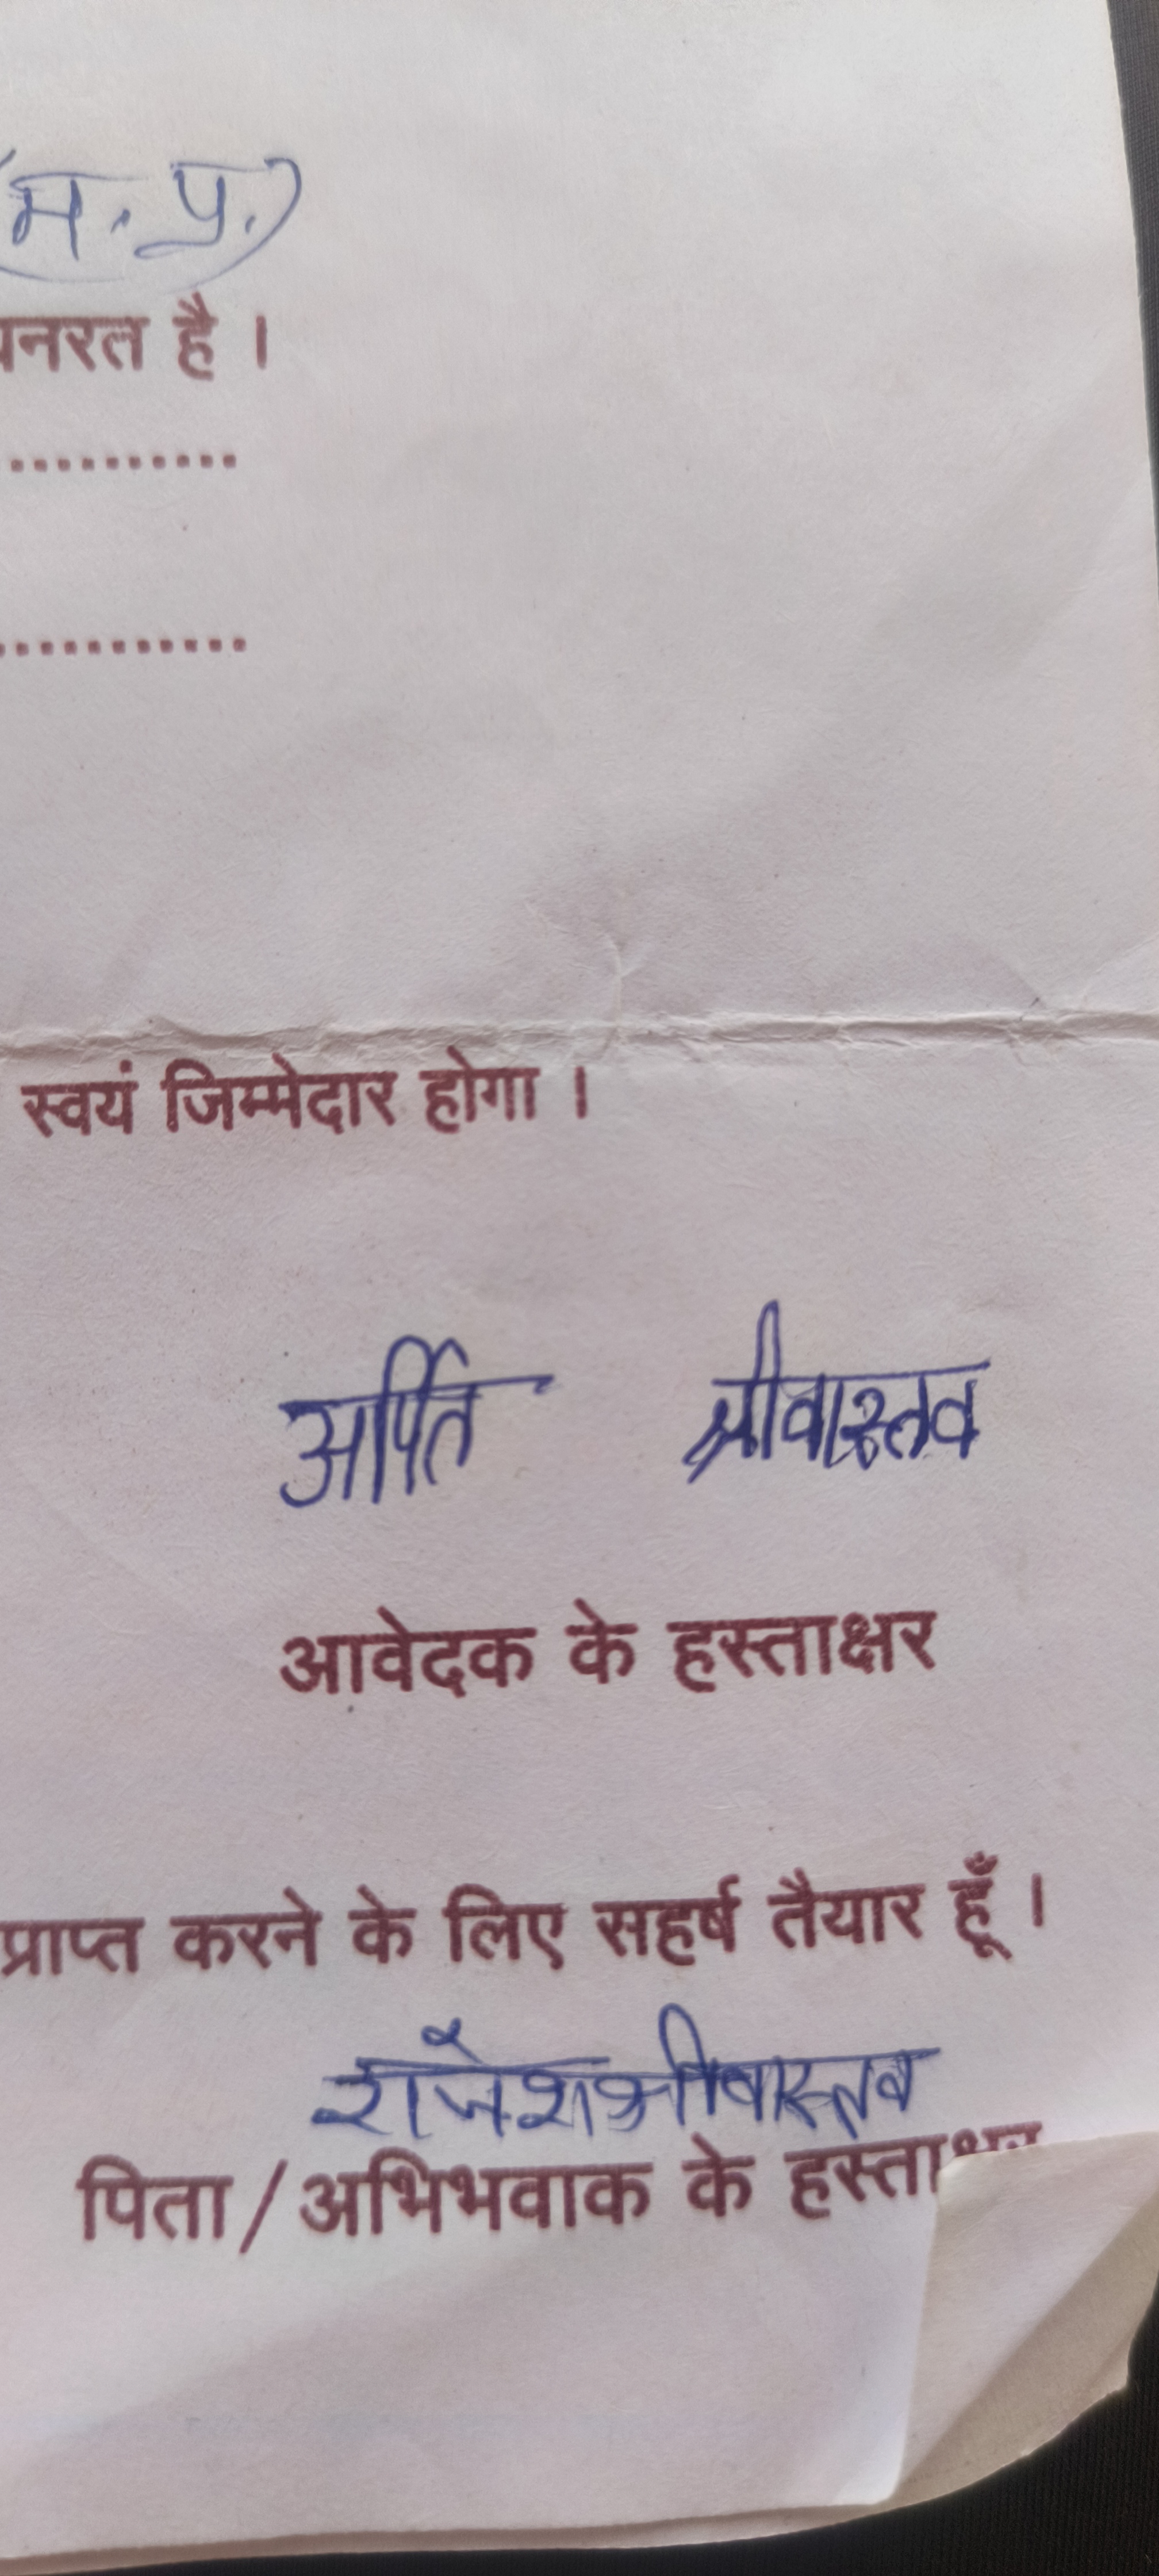 (म. प्र.)
यनरत है ।
..........
...........
स्वयं जिम्मेदार होगा ।
अर्पित श्रीवास्तव
आवेदक के हस्ताक्षर
प्राप्त करने के लिए सहर्ष तैयार हूँ ।
राजेश श्रीवास्तव
पिता/अभिभवाक के हस्ताक्षर